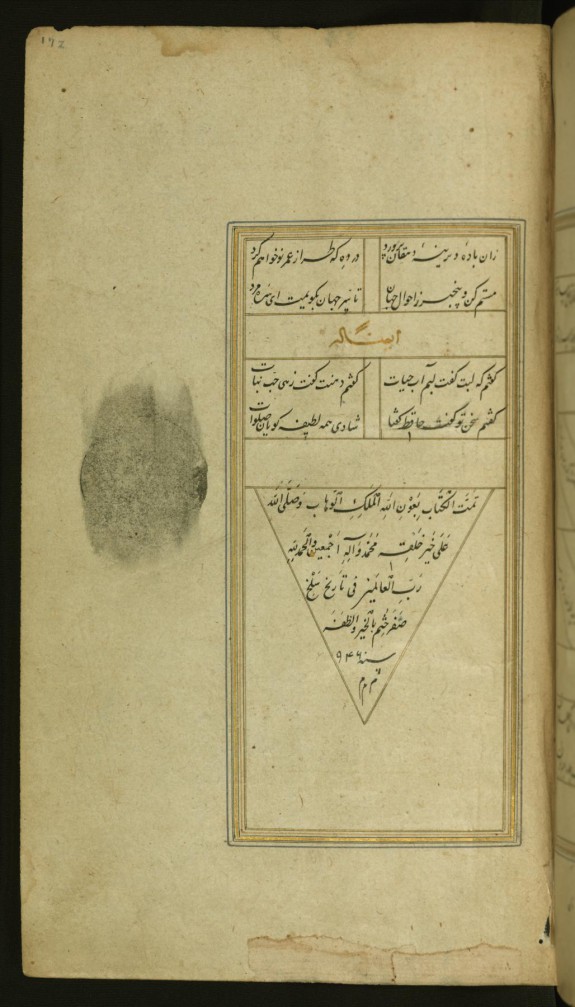 ۱۷۲
زان بادهٔ دیرینهٔ دهقان پرورد در ده که طراز عمر نو خواهم کرد
مستم کن و بیخبر ز احوال جهان تا سر جهان بگویمت ای سره مرد
ایضاً له
گفتم که لبت گفت لبم آب حیات گفتم دهنت گفت زهی حب نبات
گفتم سخن تو گفت حافظ گفتا شادی همه لطیفه گویان صلوات
تمت الکتاب بعون الله الملک الوهاب وصلی الله
علی خیر خلقه محمد وآله اجمعین والحمد لله
رب العالمین فی تاریخ سلخ
صفر ختم بالخیر والظفر
سنه ۹۴۶
م م م